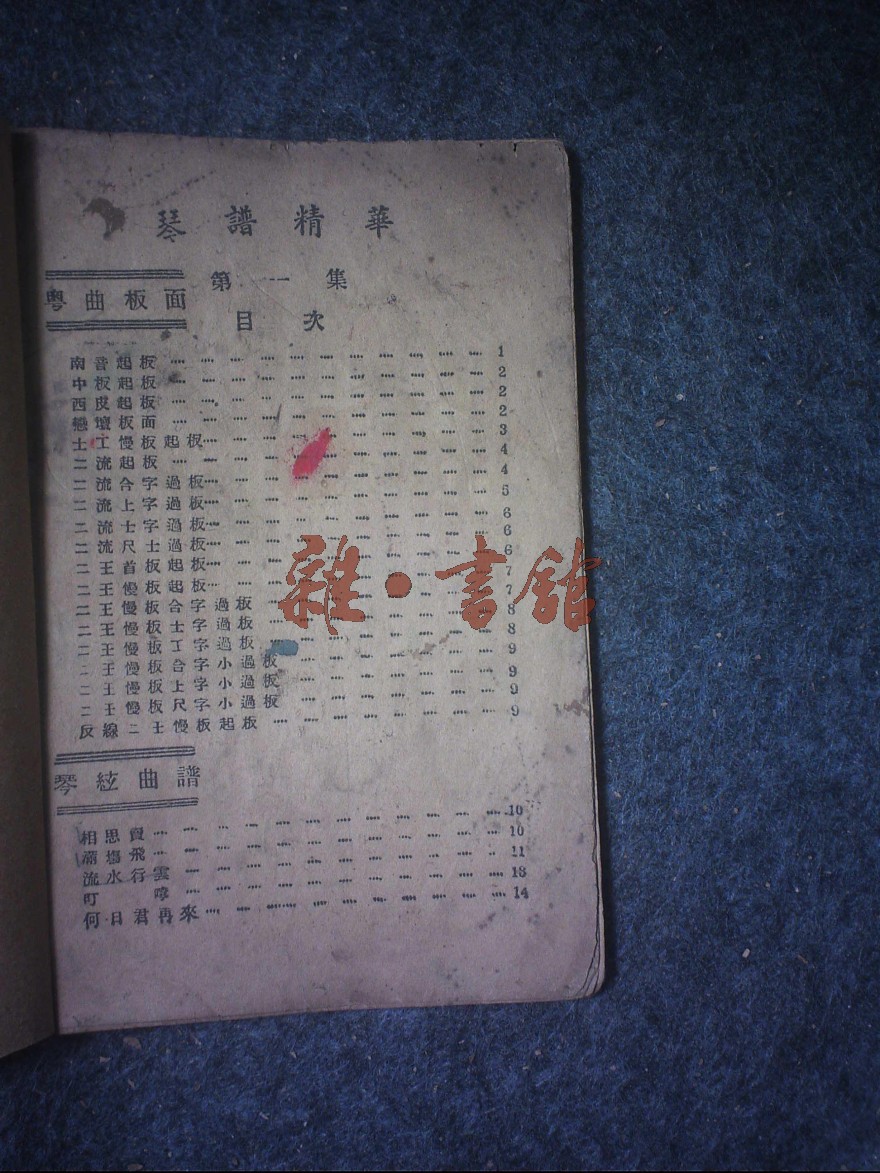 琴譜精華
第一集
粵曲板面
目次
南音起板 ………… 1
中板起板 ………… 2
西皮起板 ………… 2
戀壇板面 ………… 2
士工慢板起板 ………… 3
二流起板 ………… 4
二流合字過板 ………… 4
二流上字過板 ………… 5
二流士字過板 ………… 6
二流尺士過板 ………… 6
二王首板起板 ………… 6
二王慢板起板 ………… 7
二王慢板合字過板 ………… 7
二王慢板士字過板 ………… 8
二王慢板工字過板 ………… 8
二王慢板合字小過板 ………… 9
二王慢板上字小過板 ………… 9
二王慢板尺字小過板 ………… 9
反線二王慢板起板 ………… 9
琴絃曲譜
相思 ………… 10
飛 ………… 10
流水行雲 ………… 11
叮嚀 ………… 13
何日君再來 ………… 14
雜·書館